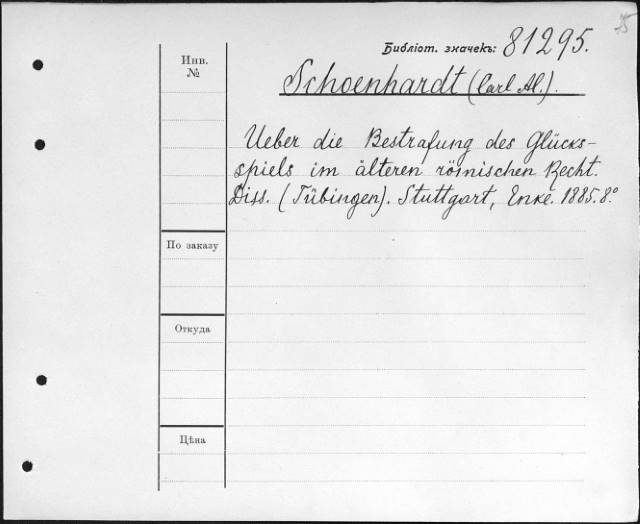 Библіот. значекъ: 81295.
Инв.
№
Schoenhardt (Carl Al.).
Ueber die Bestrafung des Glücks-
spiels im älteren römischen Recht.
Diss. (Tübingen). Stuttgart, Enke. 1885. 8.°
По заказу
Откуда
Цѣна